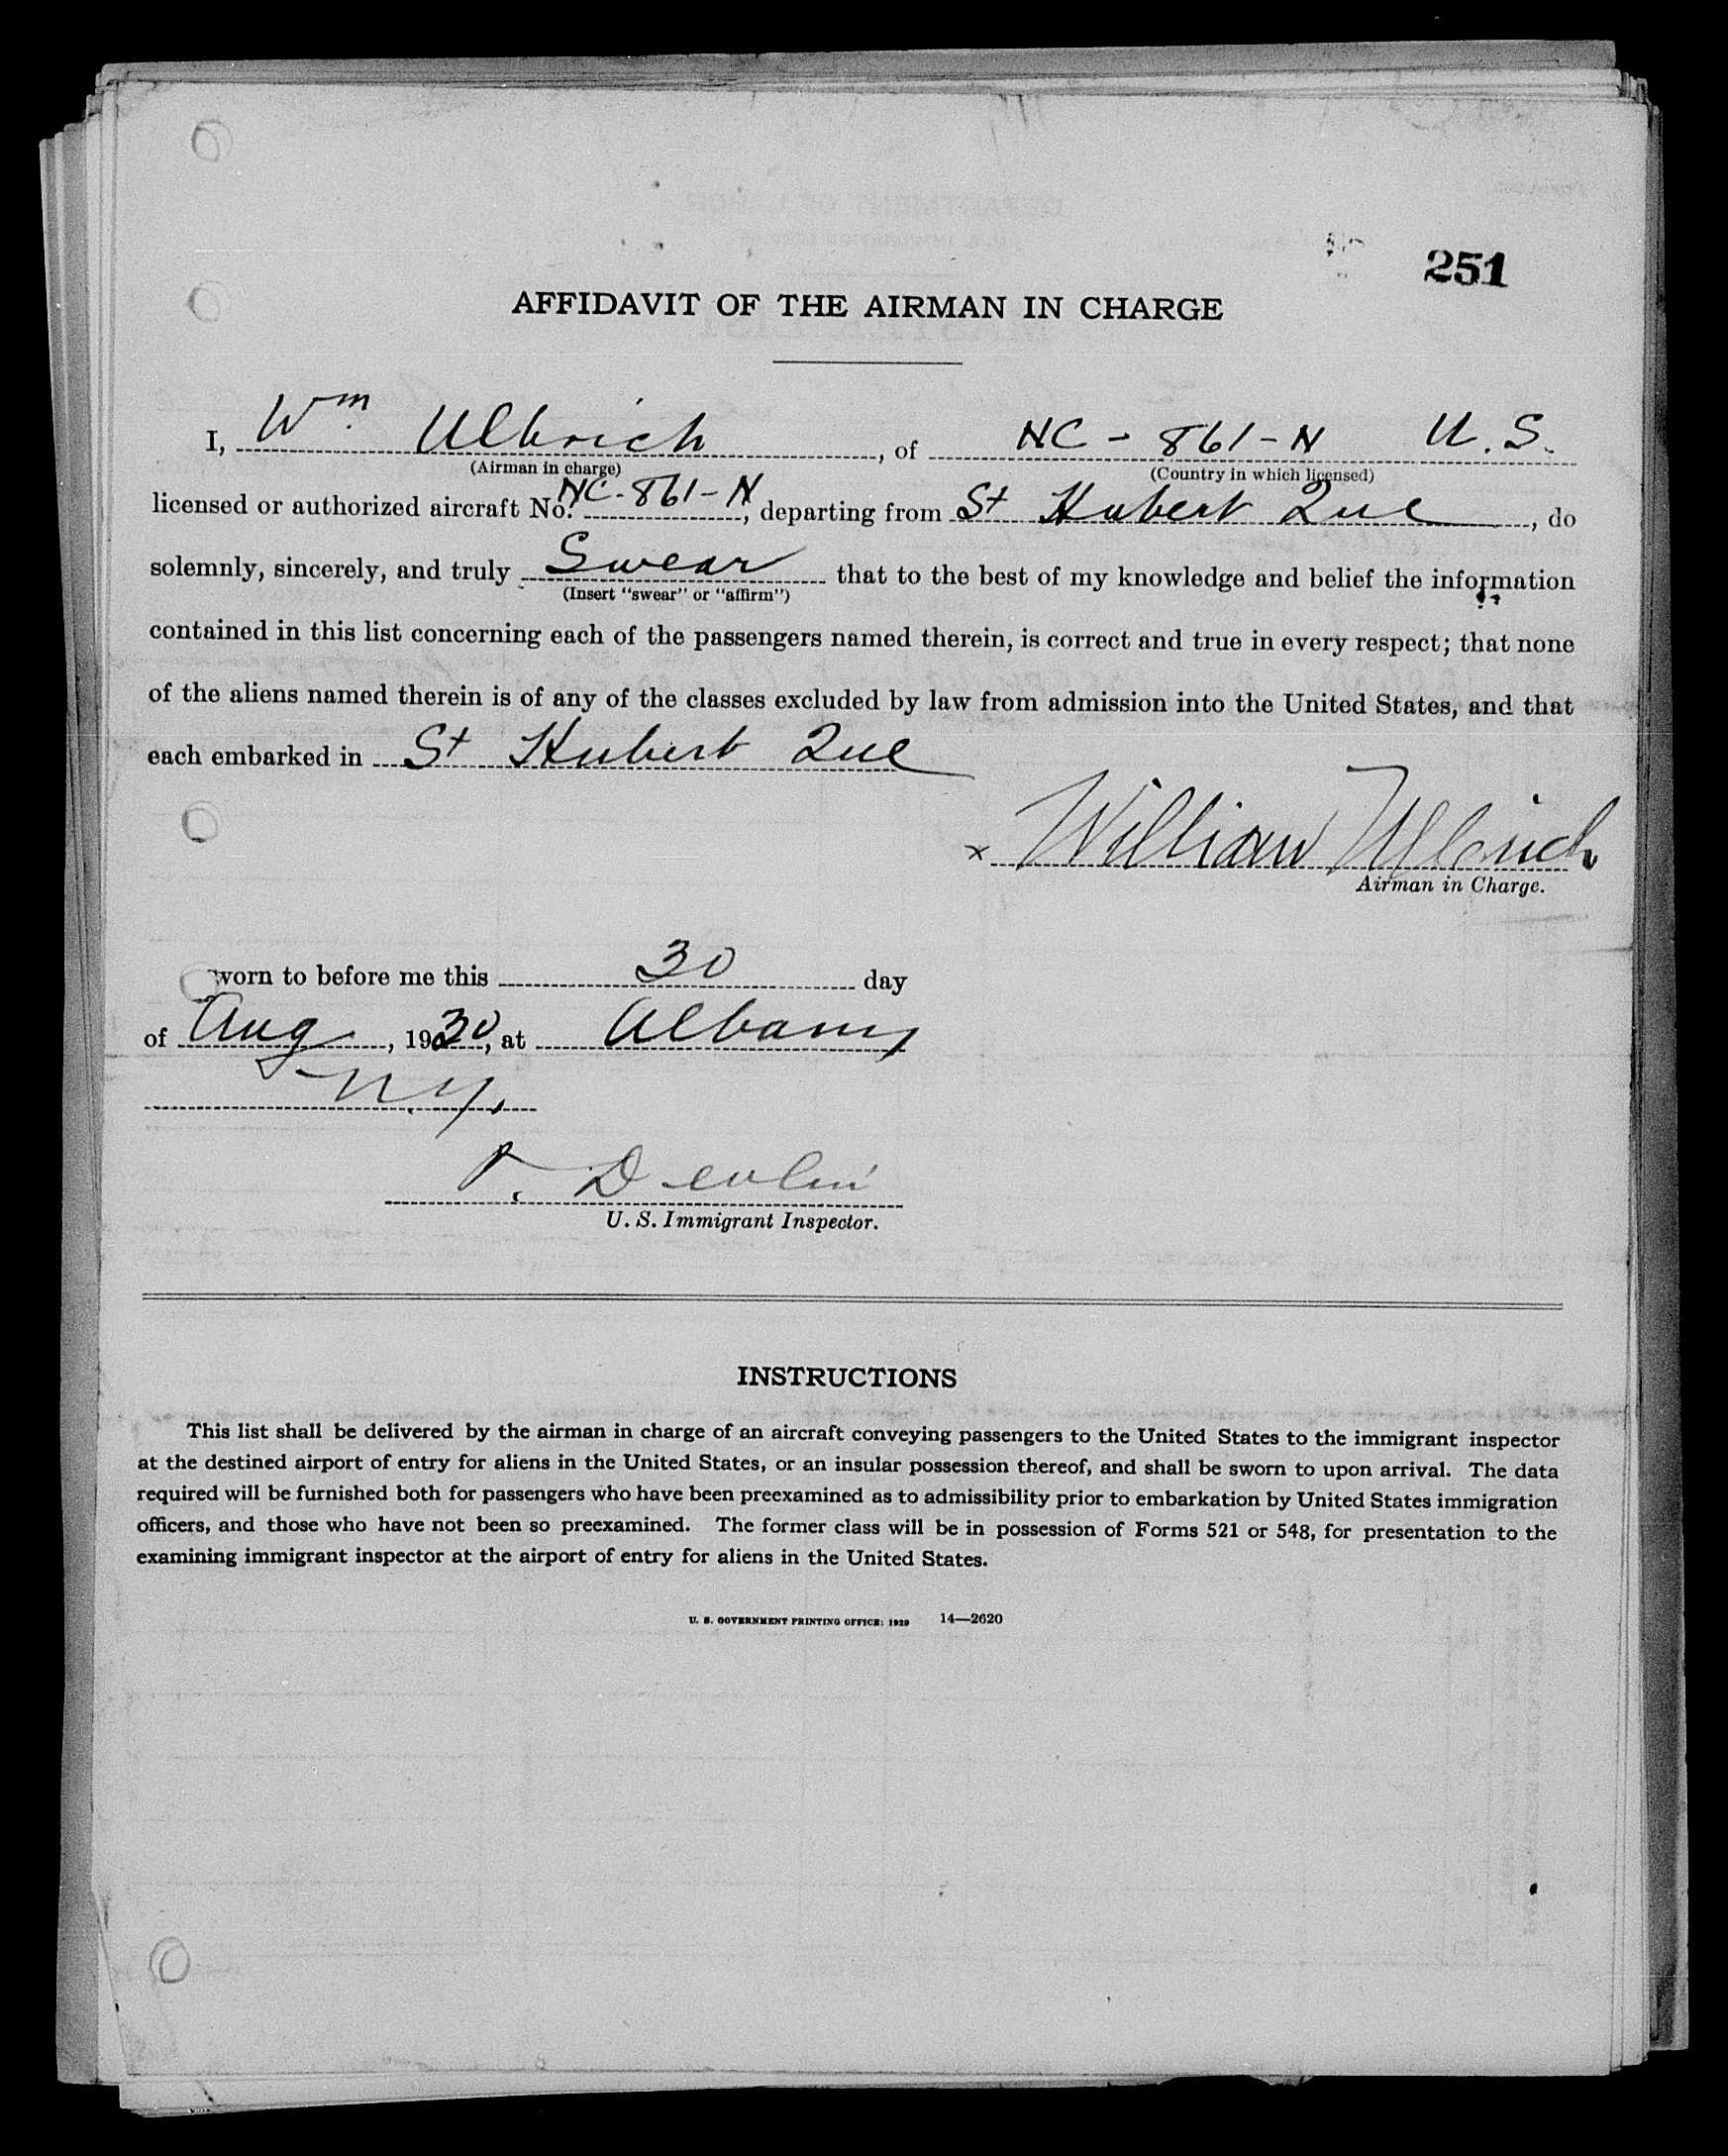 251
AFFIDAVIT OF THE AIRMAN IN CHARGE
I, Wm. Ulbrich, of NC-861-N U.S.
(Airman in charge) (Country in which licensed)
licensed or authorized aircraft No. NC-861-N, departing from St Hubert Que, do
solemnly, sincerely, and truly Swear that to the best of my knowledge and belief the information
(Insert "swear" or "affirm")
contained in this list concerning each of the passengers named therein, is correct and true in every respect; that none
of the aliens named therein is of any of the classes excluded by law from admission into the United States, and that
each embarked in St Hubert Que
x William Ulbrich
Airman in Charge.
worn to before me this 30 day
of Aug, 1930, at Albany
N.Y.
P. Devlin
U. S. Immigrant Inspector.
INSTRUCTIONS
This list shall be delivered by the airman in charge of an aircraft conveying passengers to the United States to the immigrant inspector
at the destined airport of entry for aliens in the United States, or an insular possession thereof, and shall be sworn to upon arrival. The data
required will be furnished both for passengers who have been preexamined as to admissibility prior to embarkation by United States immigration
officers, and those who have not been so preexamined. The former class will be in possession of Forms 521 or 548, for presentation to the
examining immigrant inspector at the airport of entry for aliens in the United States.
U. S. GOVERNMENT PRINTING OFFICE: 1929 14—2620